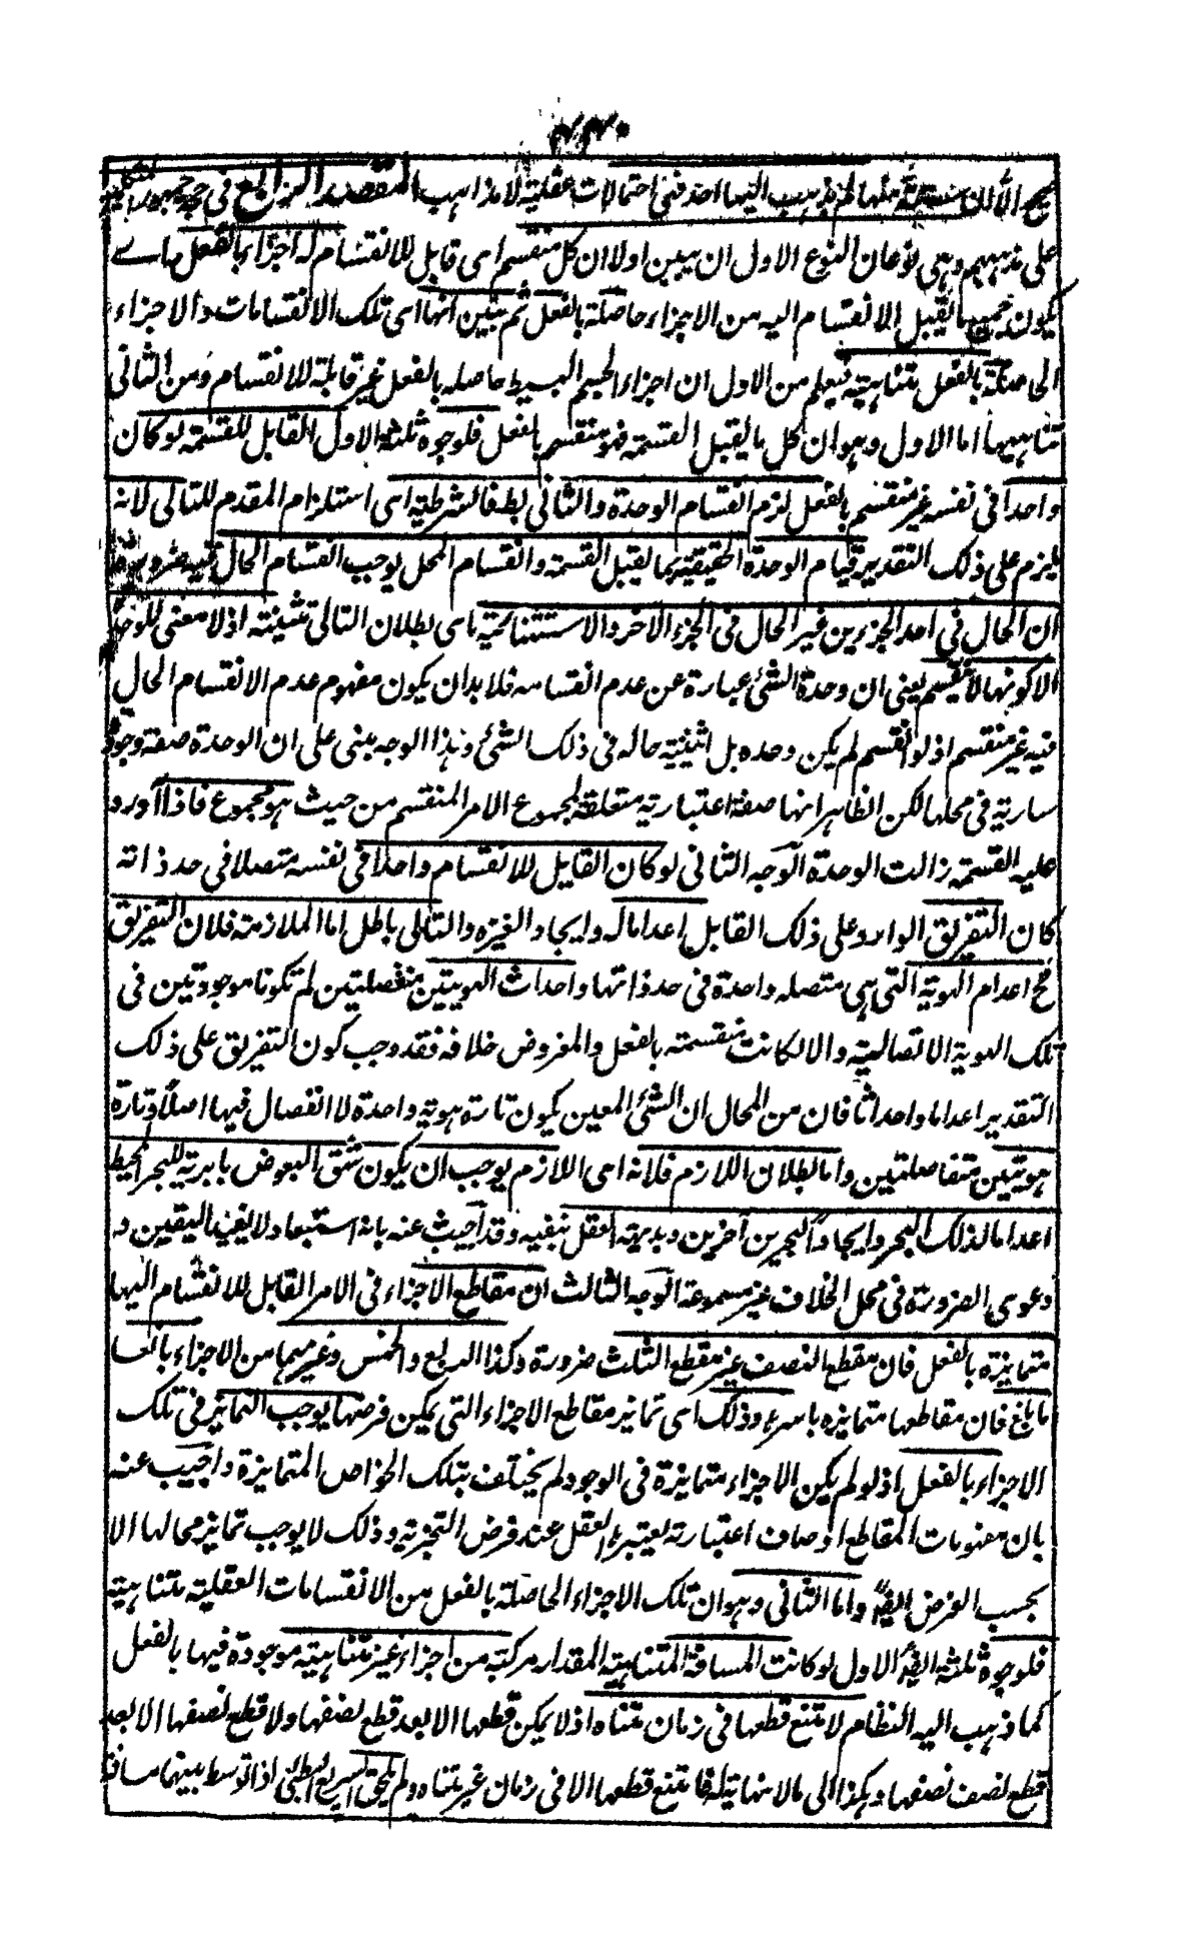 ۴۴۰
صح الا ان ستة منها لم يذهب اليها احد فهى احتمالات عقلية لا مذاهب المقصد الرابع فى حجج جمهور المتكلمين
على مذهبهم وهى نوعان النوع الاول ان يبين اولا ان كل منقسم اى قابل للانقسام له اجزاء بالفعل بل
يكون جميع ما يقبل الانقسام اليه من الاجزاء حاصلة بالفعل ثم يبين انها اى تلك الانقسامات والاجزاء
الحاصلة بالفعل متناهية فيعلم من الاول ان اجزاء الجسم البسيط حاصله بالفعل غير قابلة للانقسام ومن الثانى
تناهيها اما الاول وهو ان كل ما يقبل القسمة فهو منقسم بالفعل فلوجوه ثلثة الاول القابل للقسمة لو كان
واحدا فى نفسه غير منقسم بالفعل لزم انقسام الوحدة والثانى بط فالشرطية اى استلزام المقدم للتالى لانه
يلزم على ذلك التقدير قيام الوحدة الحقيقية بما يقبل القسمة وانقسام المحل يوجب انقسام الحال فيه ضرورة
ان الحال فى احد الجزءين غير الحال فى الجزء الآخر والاستثنائية اى بطلان التالى بينة اذ لا معنى للوحدة
الا كونها لا تنقسم يعنى ان وحدة الشئ عبارة عن عدم انقسامه فلا بد ان يكون مفهوم عدم الانقسام الحال
فيه غير منقسم اذ لو انقسم لم يكن وحده بل اثنينية حاله فى ذلك الشئ وهذا الوجه مبنى على ان الوحدة صفة وجودية
سارية فى محلها لكن الظاهر انها صفة اعتبارية متعلقة بمجموع الامر المنقسم من حيث هو مجموع فاذا اورد
عليه القسمة زالت الوحدة الوجه الثانى لو كان القابل للانقسام واحدا فى نفسه متصلا فى حد ذاته
كان التفريق الوارد على ذلك القابل اعداما له وايجادا لغيره والتالى باطل اما الملازمة فلان التفريق
ح اعدام الهوية التى هى متصله واحدة فى حد ذاتها واحداث الهويتين منفصلتين لم تكونا موجودتين فى
تلك الهوية الاتصالية والا لكانت منقسمة بالفعل والمفروض خلافه فقد وجب كون التفريق على ذلك
التقدير اعداما واحداثا فان من المحال ان الشئ المعين يكون تارة هوية واحدة لا انفصال فيها اصلا وتارة
هويتين متفاصلتين واما بطلان اللازم فلانه اى اللازم يوجب ان يكون شق البعوض بابرته للبحر المحيط
اعداما لذلك البحر وايجادا لبحرين آخرين وبديهة العقل تنفيه وقد اجيب عنه بانه استبعاد لا يفيد اليقين و
دعوى الضرورة فى محل الخلاف غير مسموعة الوجه الثالث ان مقاطع الاجزاء فى الامر القابل للانقسام اليها
متمايزة بالفعل فان مقطع النصف غير مقطع الثلث ضرورة وكذا الربع والخمس وغيرهما من الاجزاء بالغا
ما بلغ فان مقاطعها متمايزه باسرها وذلك اى تمايز مقاطع الاجزاء التى يمكن فرضها يوجب التمايز فى تلك
الاجزاء بالفعل اذ لو لم يكن الاجزاء متمايزة فى الوجود لم يختلف بتلك الخواص المتمايزة واجيب عنه
بان مفهومات المقاطع اوصاف اعتبارية يعتبرها العقل عند فرض التجزية وذلك لا يوجب تمايز محالها الا
بحسب الفرض ايضا واما الثانى وهو ان تلك الاجزاء الحاصلة بالفعل من الانقسامات العقلية متناهية
فلوجوه ثلثة ايضا الاول لو كانت المسافة المتناهية المقدار مركبة من اجزاء غير متناهية موجودة فيها بالفعل
كما ذهب اليه النظام لامتنع قطعها فى زمان متناه اذ لا يمكن قطعها الا بعد قطع نصفها ولا قطع نصفها الا بعد
قطع نصف نصفها وهكذا الى ما لا نهاية له فامتنع قطعها الا فى زمان غير متناه ولم يلحق السريع البطئ اذا توسط بينهما مسافة